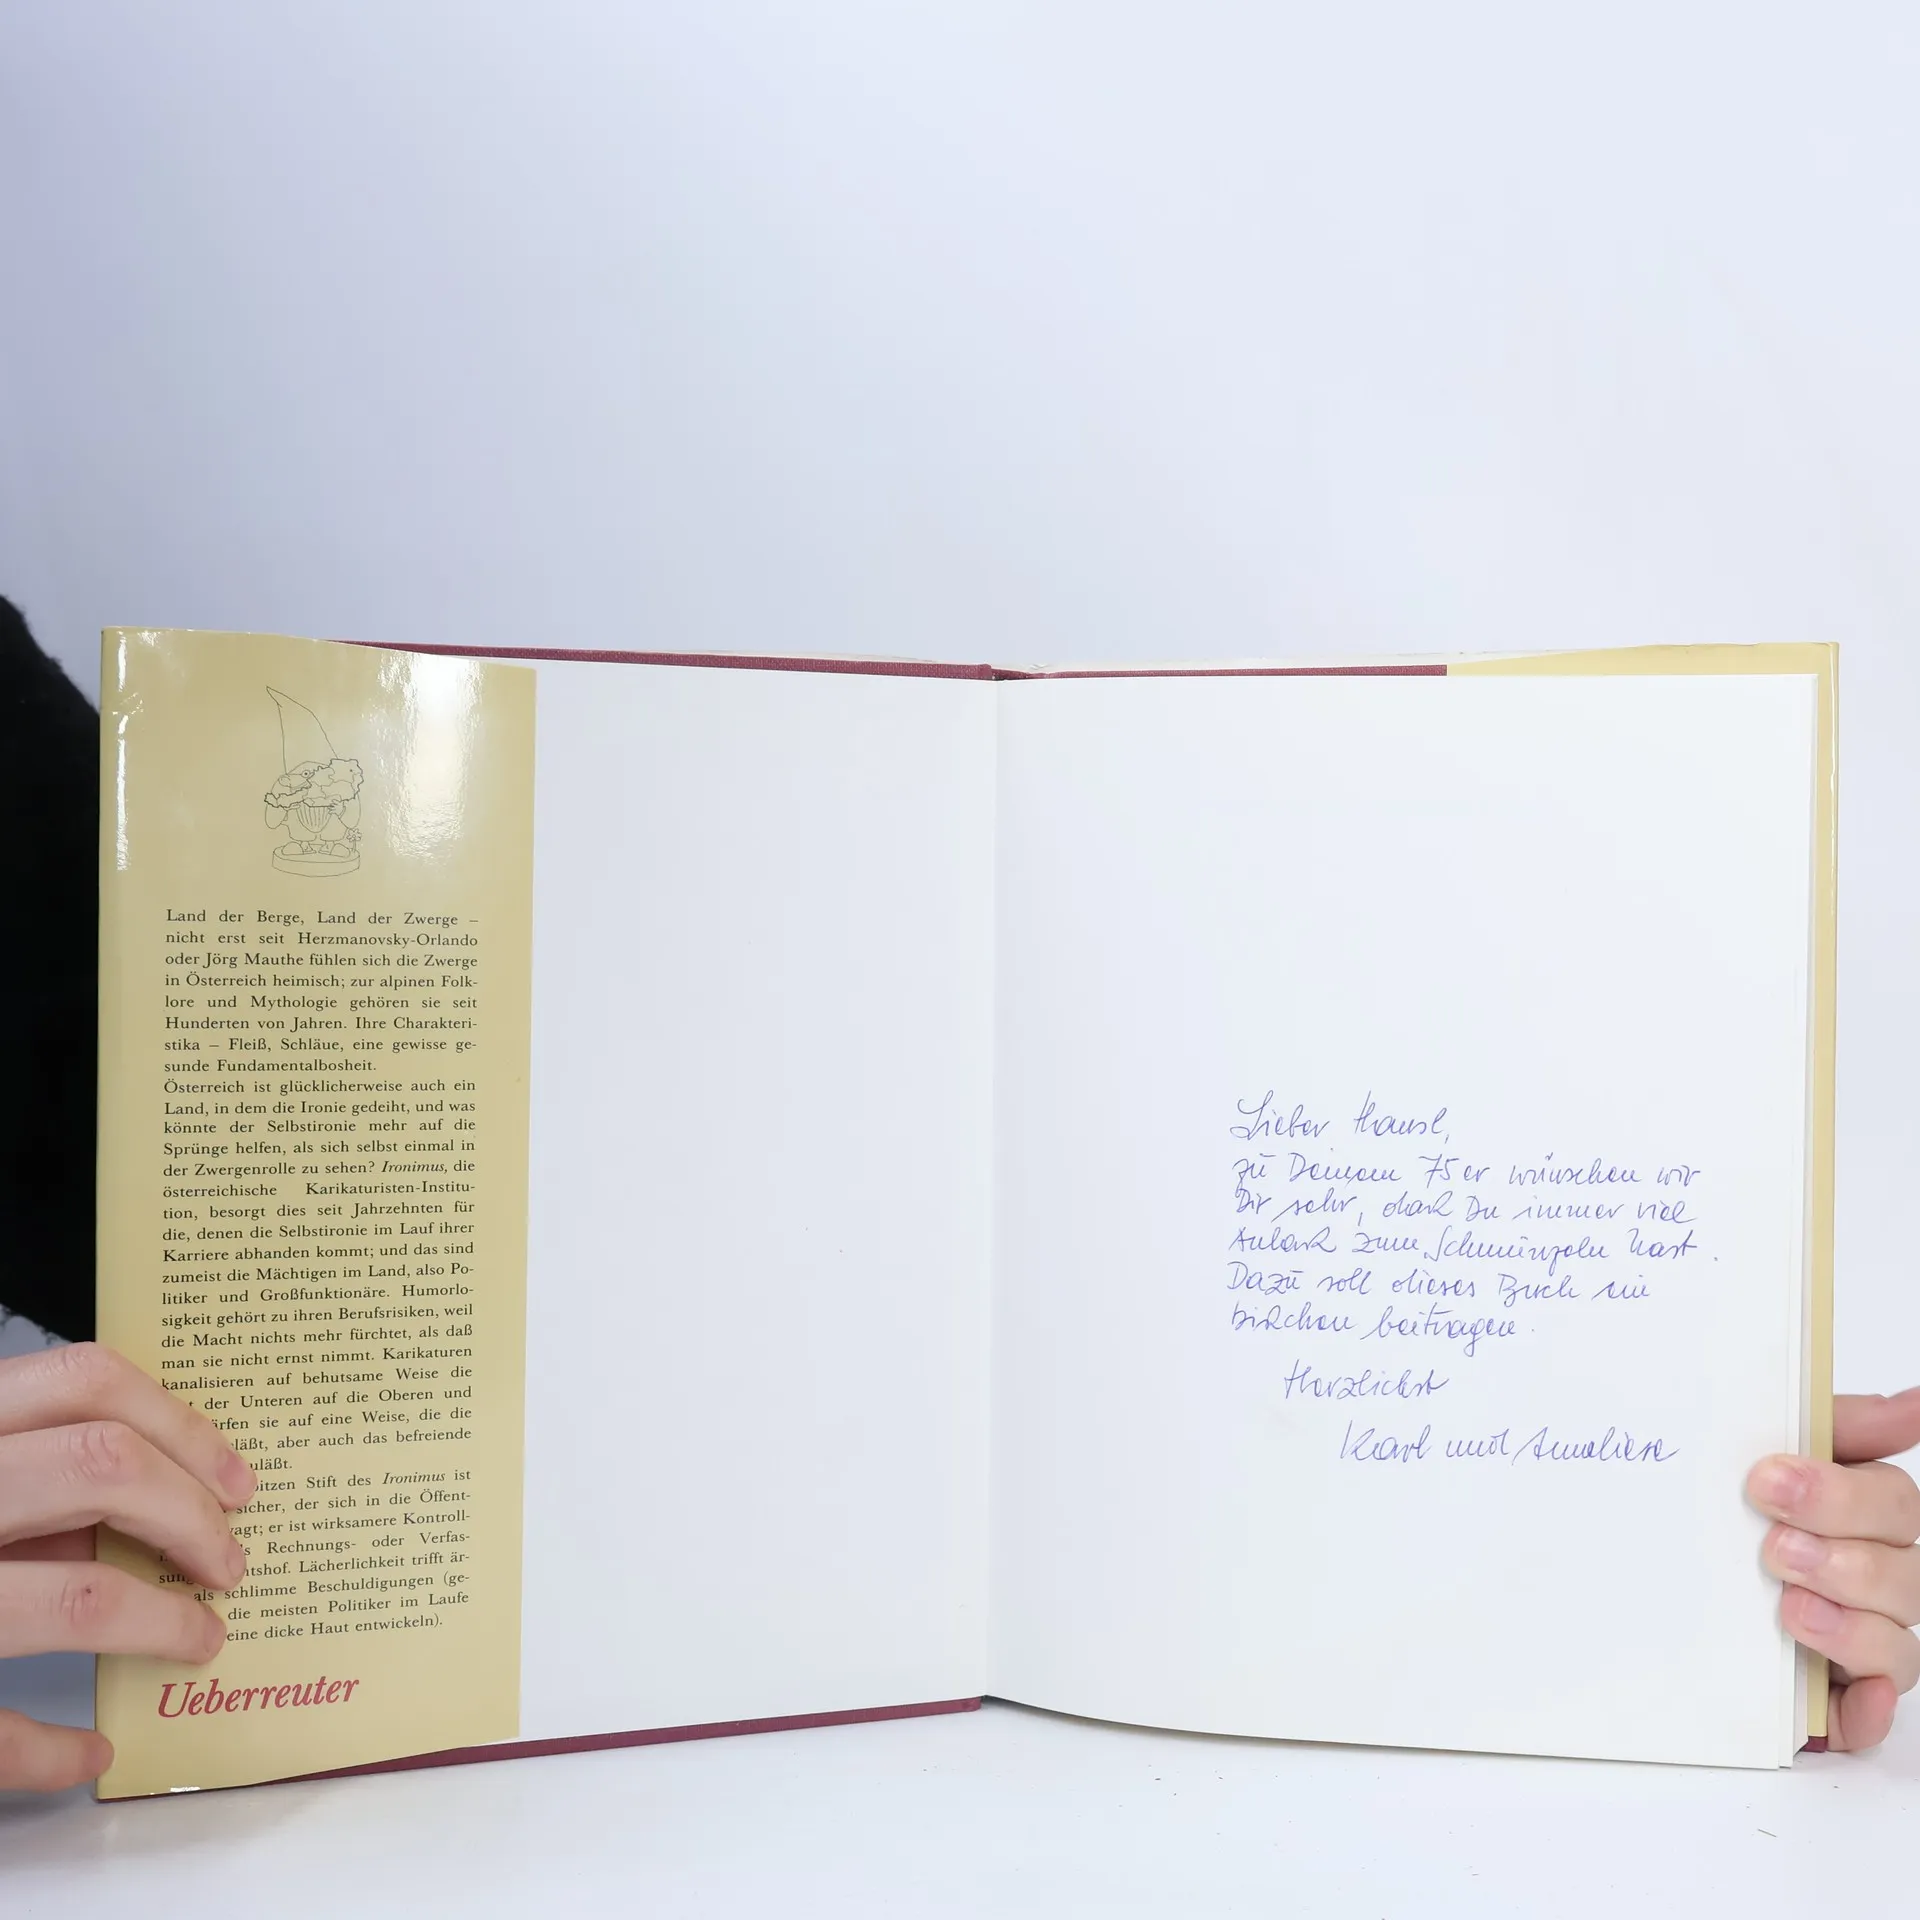 Land der Berge, Land der Zwerge –
nicht erst seit Herzmanovsky-Orlando
oder Jörg Mauthe fühlen sich die Zwerge
in Österreich heimisch; zur alpinen Folk-
lore und Mythologie gehören sie seit
Hunderten von Jahren. Ihre Charakteri-
stika – Fleiß, Schläue, eine gewisse ge-
sunde Fundamentalbosheit.
Österreich ist glücklicherweise auch ein
Land, in dem die Ironie gedeiht, und was
könnte der Selbstironie mehr auf die
Sprünge helfen, als sich selbst einmal in
der Zwergenrolle zu sehen? Ironimus, die
österreichische Karikaturisten-Institu-
tion, besorgt dies seit Jahrzehnten für
die, denen die Selbstironie im Lauf ihrer
Karriere abhanden kommt; und das sind
zumeist die Mächtigen im Land, also Po-
litiker und Großfunktionäre. Humorlo-
sigkeit gehört zu ihren Berufsrisiken, weil
die Macht nichts mehr fürchtet, als daß
man sie nicht ernst nimmt. Karikaturen
kanalisieren auf behutsame Weise die
der Unteren auf die Oberen und
sie auf eine Weise, die die
aber auch das befreiende
Stift des Ironimus ist
sicher, der sich in die Öffent-
er ist wirksamere Kontroll-
Rechnungs- oder Verfas-
Lächerlichkeit trifft är-
als schlimme Beschuldigungen (ge-
die meisten Politiker im Laufe
eine dicke Haut entwickeln).
Ueberreuter
Lieber Hansl,
zu Deinem 75er wünschen wir
Dir sehr, daß Du immer viel
Anlaß zum Schmunzeln hast.
Dazu soll dieses Buch ein
bißchen beitragen.
Herzlichst
Karl und Anneliese